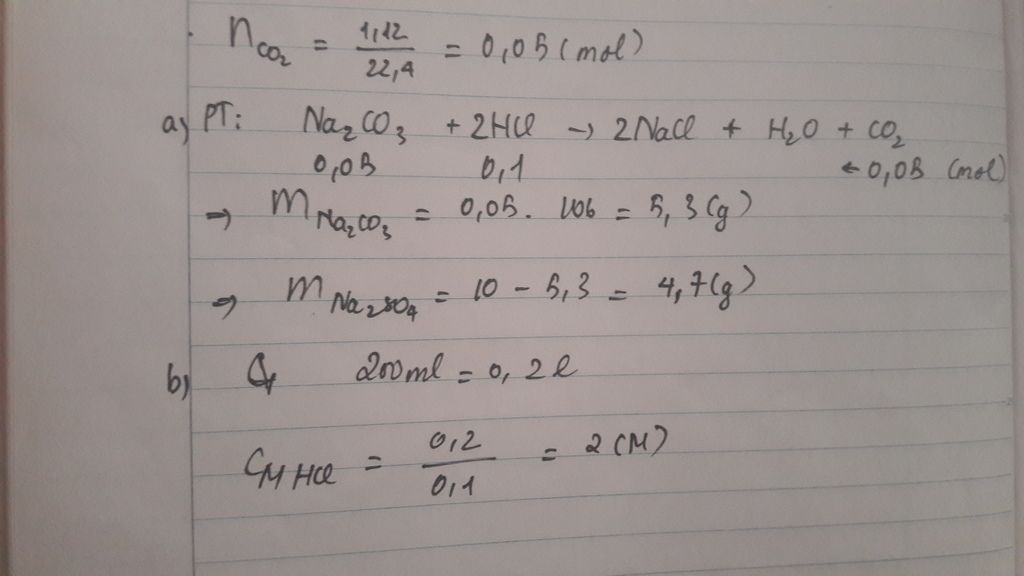 n CO2 = 1,12 / 22,4 = 0,05 (mol)
a) PT: Na2CO3 + 2HCl → 2NaCl + H2O + CO2
0,05 0,1 ← 0,05 (mol)
⇒ m Na2CO3 = 0,05. 106 = 5,3 (g)
⇒ m Na2SO4 = 10 - 5,3 = 4,7 (g)
b) 200ml = 0,2l
CM HCl = 0,2 / 0,1 = 2 (M)